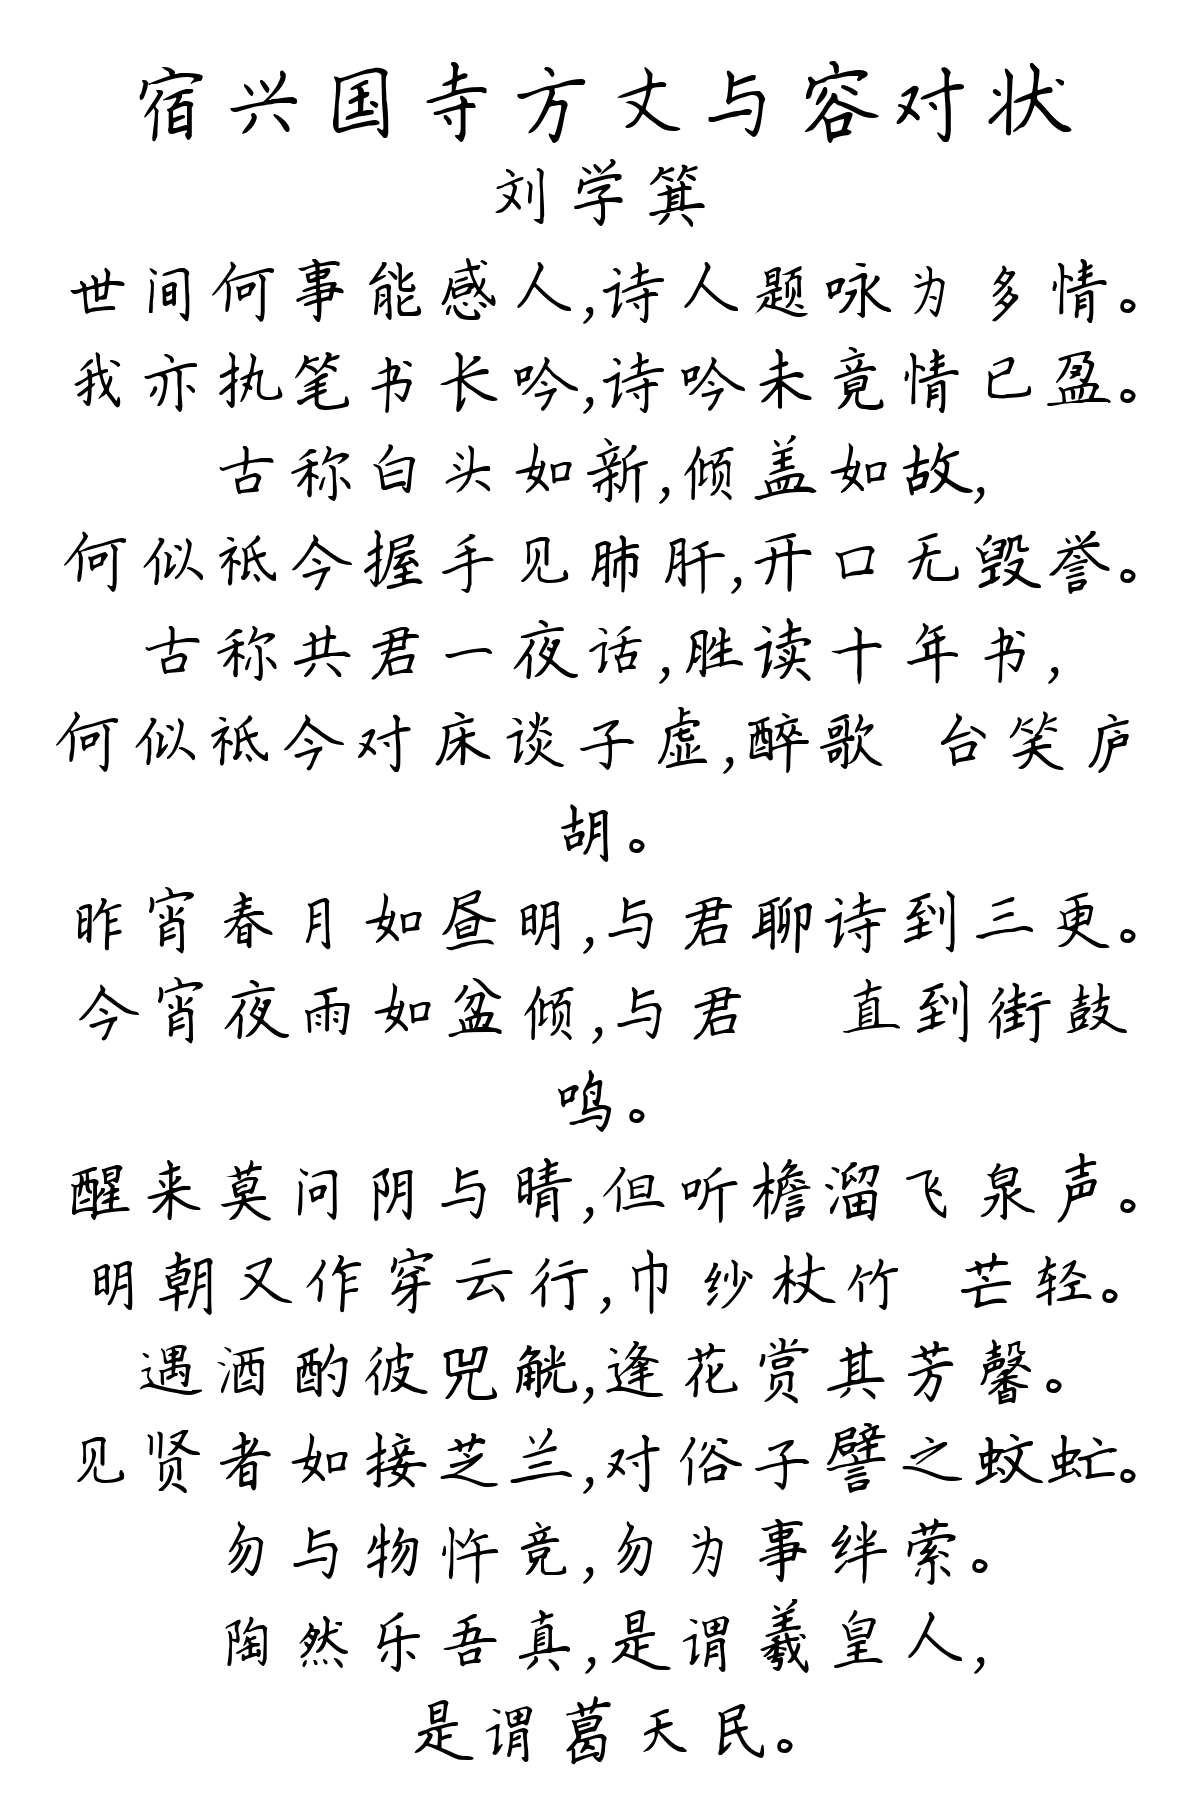 宿兴国寺方丈与容对状
刘学箕
世间何事能感人,诗人题咏为多情。
我亦执笔书长吟,诗吟未竟情已盈。
古称白头如新,倾盖如故,
何似祇今握手见肺肝,开口无毁誉。
古称共君一夜话,胜读十年书,
何似祇今对床谈子虚,醉歌 台笑庐
胡。
昨宵春月如昼明,与君聊诗到三更。
今宵夜雨如盆倾,与君 直到街鼓
鸣。
醒来莫问阴与晴,但听檐溜飞泉声。
明朝又作穿云行,巾纱杖竹 芒轻。
遇酒酌彼兕觥,逢花赏其芳馨。
见贤者如接芝兰,对俗子譬之蚊虻。
勿与物忤竞,勿为事绊萦。
陶然乐吾真,是谓羲皇人,
是谓葛天民。